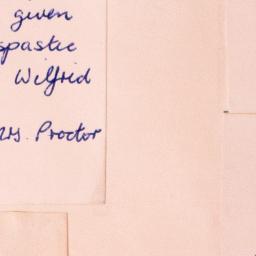 given
spastic
Wilfrid
Mrs. Proctor